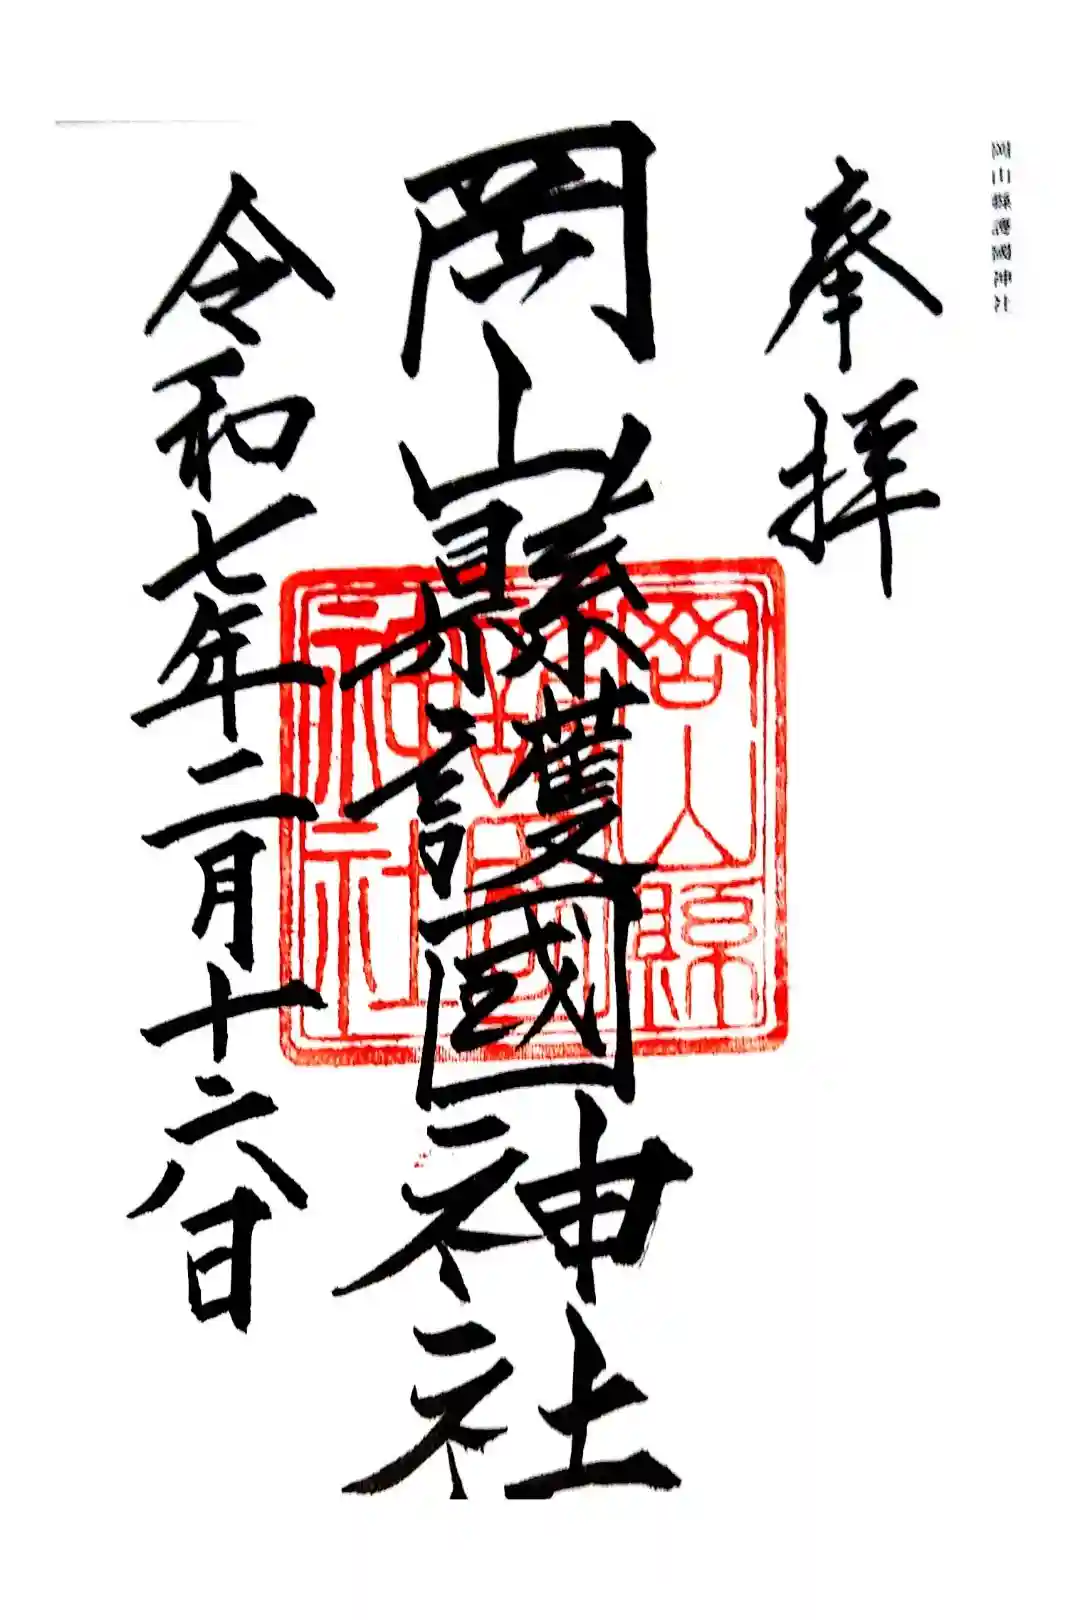 岡山縣護國神社
奉拝
岡山縣護國神社
岡山縣護國神社
令和七年二月十六日